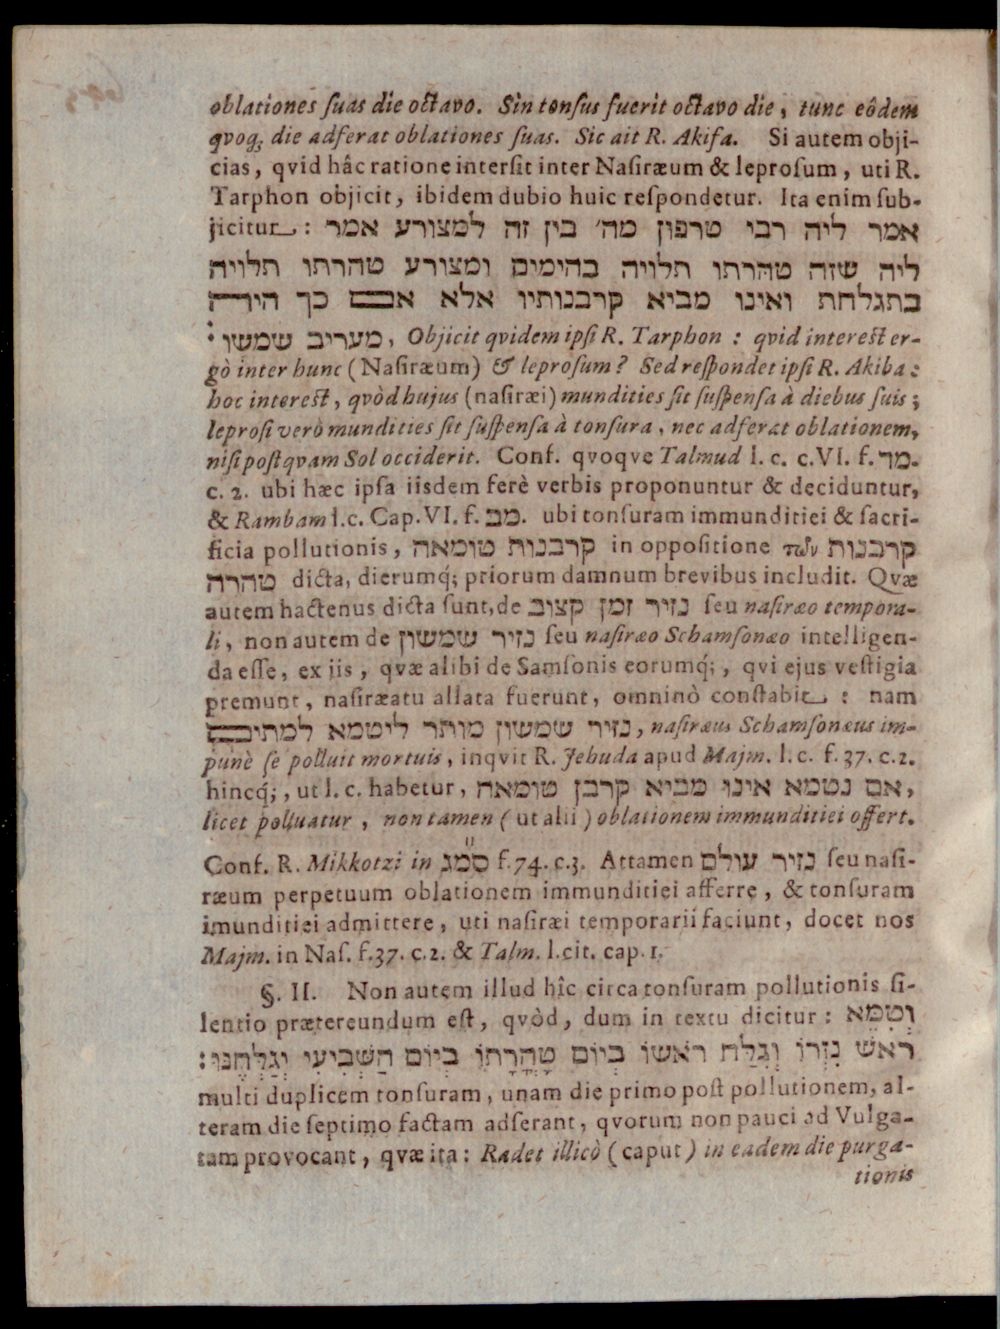 oblationes ſuas die octavo. Sin tonſus fuerit octavo die, tunc eôdem
qvoq; die adferat oblationes ſuas. Sic ait R. Akifa. Si autem obji-
cias, qvid hâc ratione interſit inter Naſiræum & leproſum, uti R.
Tarphon objicit, ibidem dubio huic reſpondetur. Ita enim ſub-
jicitur: אמר ליה רבי טרפון מה׳ בין זה למצורע אמר
ליה שזה טהרתו תלויה בהימים ומצורע טהרתו תלויה
בתגלחת ואינו מביא קרבנותיו אלא אם כך היה
מעריב שמשו׃, Objicit qvidem ipſi R. Tarphon: qvid intereſt er-
gò inter hunc (Naſiræum) & leproſum? Sed reſpondet ipſi R. Akiba:
hoc intereſt, qvòd hujus (naſiræi) mundities ſit ſuſpenſa à diebus ſuis;
leproſi verò mundities ſit ſuſpenſa à tonſura, nec adferat oblationem,
niſi poſtqvam Sol occiderit. Conf. qvoqve Talmud l. c. c. VI. f. מד.
c. 2. ubi hæc ipſa iisdem ferè verbis proponuntur & deciduntur,
& Rambam l. c. Cap. VI. f. מב. ubi tonſuram immunditiei & ſacri-
ficia pollutionis, קרבנות טומאה in oppoſitione τῶν קרבנות
טהרה dicta, dierumq́; priorum damnum brevibus includit. Qvæ
autem hactenus dicta ſunt, de נזיר זמן קצוב ſeu naſiræo tempora-
li, non autem de נזיר שמשון ſeu naſiræo Schamſonæo intelligen-
da eſſe, ex iis, qvæ alibi de Samſonis eorumq́;, qvi ejus veſtigia
premunt, naſiræatu allata fuerunt, omninò conſtabit: nam
נזיר שמשון מותר ליטמא למתים, naſiræus Schamſonæus im-
punè ſe polluit mortuis, inqvit R. Jehuda apud Majm. l. c. f. 37. c. 2.
hincq́;, ut l. c. habetur, אם נטמא אינו מביא קרבן טומאה,
licet polluatur, non tamen (ut alii) oblationem immunditiei offert.
Conf. R. Mikkotzi in סמ״ג f. 74. c. 3. Attamen נזיר עולם ſeu naſi-
ræum perpetuum oblationem immunditiei afferre, & tonſuram
imunditiei admittere, uti naſiræi temporarii faciunt, docet nos
Majm. in Naſ. f. 37. c. 2. & Talm. l. cit. cap. 1.
§. II. Non autem illud hîc circa tonſuram pollutionis ſi-
lentio prætereundum eſt, qvòd, dum in textu dicitur: וְטִמֵּא
רֹאשׁ נִזְרוֹ וְגִלַּח רֹאשׁוֹ בְּיוֹם טָהֳרָתוֹ בְּיוֹם הַשְּׁבִיעִי יְגַלְּחֶנּוּ׃
multi duplicem tonſuram, unam die primo poſt pollutionem, al-
teram die ſeptimo factam adſerant, qvorum non pauci ad Vulga-
tam provocant, qvæ ita: Radet illicò (caput) in eadem die purga-
tionis